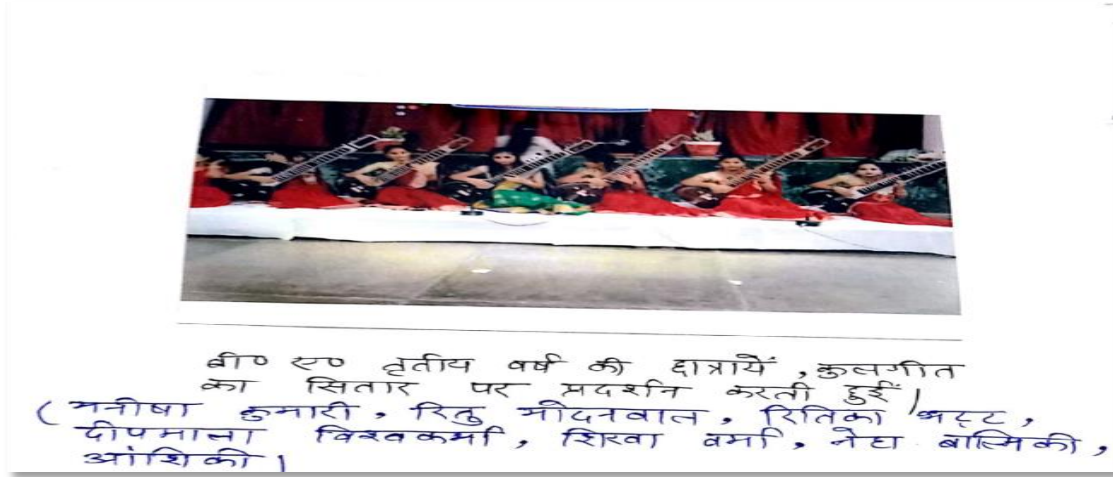 बी० ए० तृतीय वर्ष की छात्रायें , कुलगीत
का सितार पर प्रदर्शन करती हुईं।
( मनीषा कुमारी , रितु मोदनवाल , रितिका भट्ट ,
दीपमाला विश्वकर्मा , शिखा वर्मा , नेहा बाल्मिकी ,
आंशिकी ।